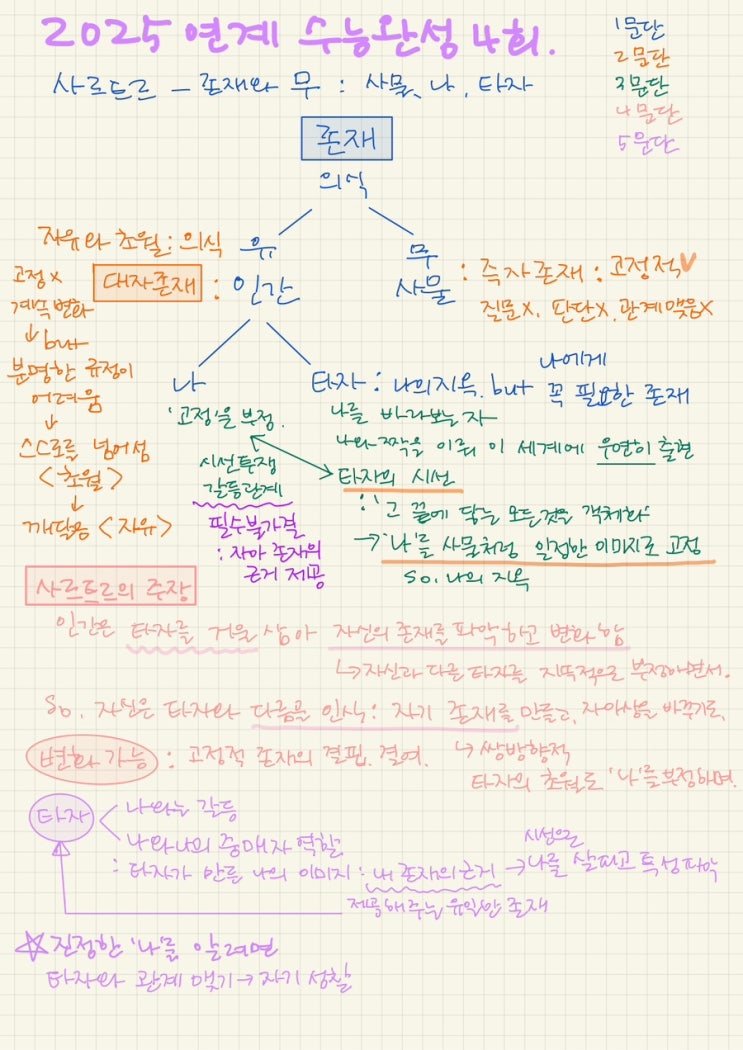 2025 연계 수능완성 4회.
1문단
2문단
3문단
4문단
5문단
사르트르 – 존재와 무 : 사물, 나, 타자
존재
의식
유
무
자유와 초월 : 의식
대자존재 : 인간
사물 : 즉자존재 : 고정적
질문X, 판단X, 관계맺음X
고정X
계속변화
↓but
분명한 규정이
어려움
↓
스스로를 넘어섬
<초월>
↓
깨달음 <자유>
나
'고정'을 부정.
타자 : 나의지옥, but 나에게 꼭 필요한 존재
나를 바라보는 자
나와 짝을 이뤄 이 세계에 우연히 출현
시선투쟁
갈등관계
필수불가결
: 자아 존재의
근거 제공
타자의 시선
∵ 그 끝에 닿는 모든것을 객체화
→ '나'를 사물처럼 일정한 이미지로 고정
so, 나의 지옥
사르트르의 주장
인간은 타자를 거울 삼아 자신의 존재를 파악하고 변화함
↳자신과 다른 타자를 지속적으로 부정하면서.
So, 자신은 타자와 다름을 인식 : 자기 존재를 만들고, 자아상을 바꾸기도,
변화가능 : 고정적 존재의 결핍, 결여.
↳ 쌍방향적
타자의 초월로 '나'를 부정하며.
타자
나와는 갈등
나와나의 중매자 역할
: 타자가 만든 나의 이미지 : 내 존재의 근거 → 시선으로 나를 살피고 특성파악
제공해주는 유일한 존재
☆진정한 '나'를 알려면
타자와 관계 맺기 → 자기 성찰